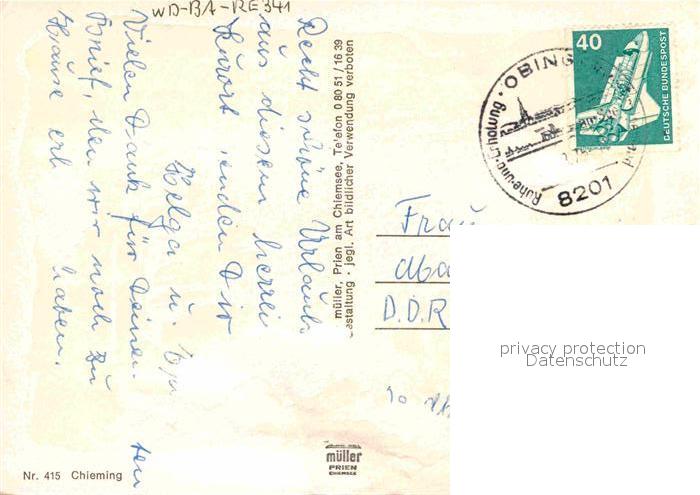 WD-BA-RE341
Recht schöne Urlaub
aus diesem herrli
Kurort senden Dir
Helga u.
Vielen Dank für Deinen
Brief, den wir noch zu
Hause erh
ten
haben.
müller, Prien am Chiemsee, Telefon 0 80 51 / 16 39
estaltung · jegl. Art bildlicher Verwendung verboten
40
DEUTSCHE BUNDESPOST
OBING
Ruhe-und-Erholung
8201
Frau
D.D.R
privacy protection
Datenschutz
müller
PRIEN
CHIEMSEE
Nr. 415 Chieming